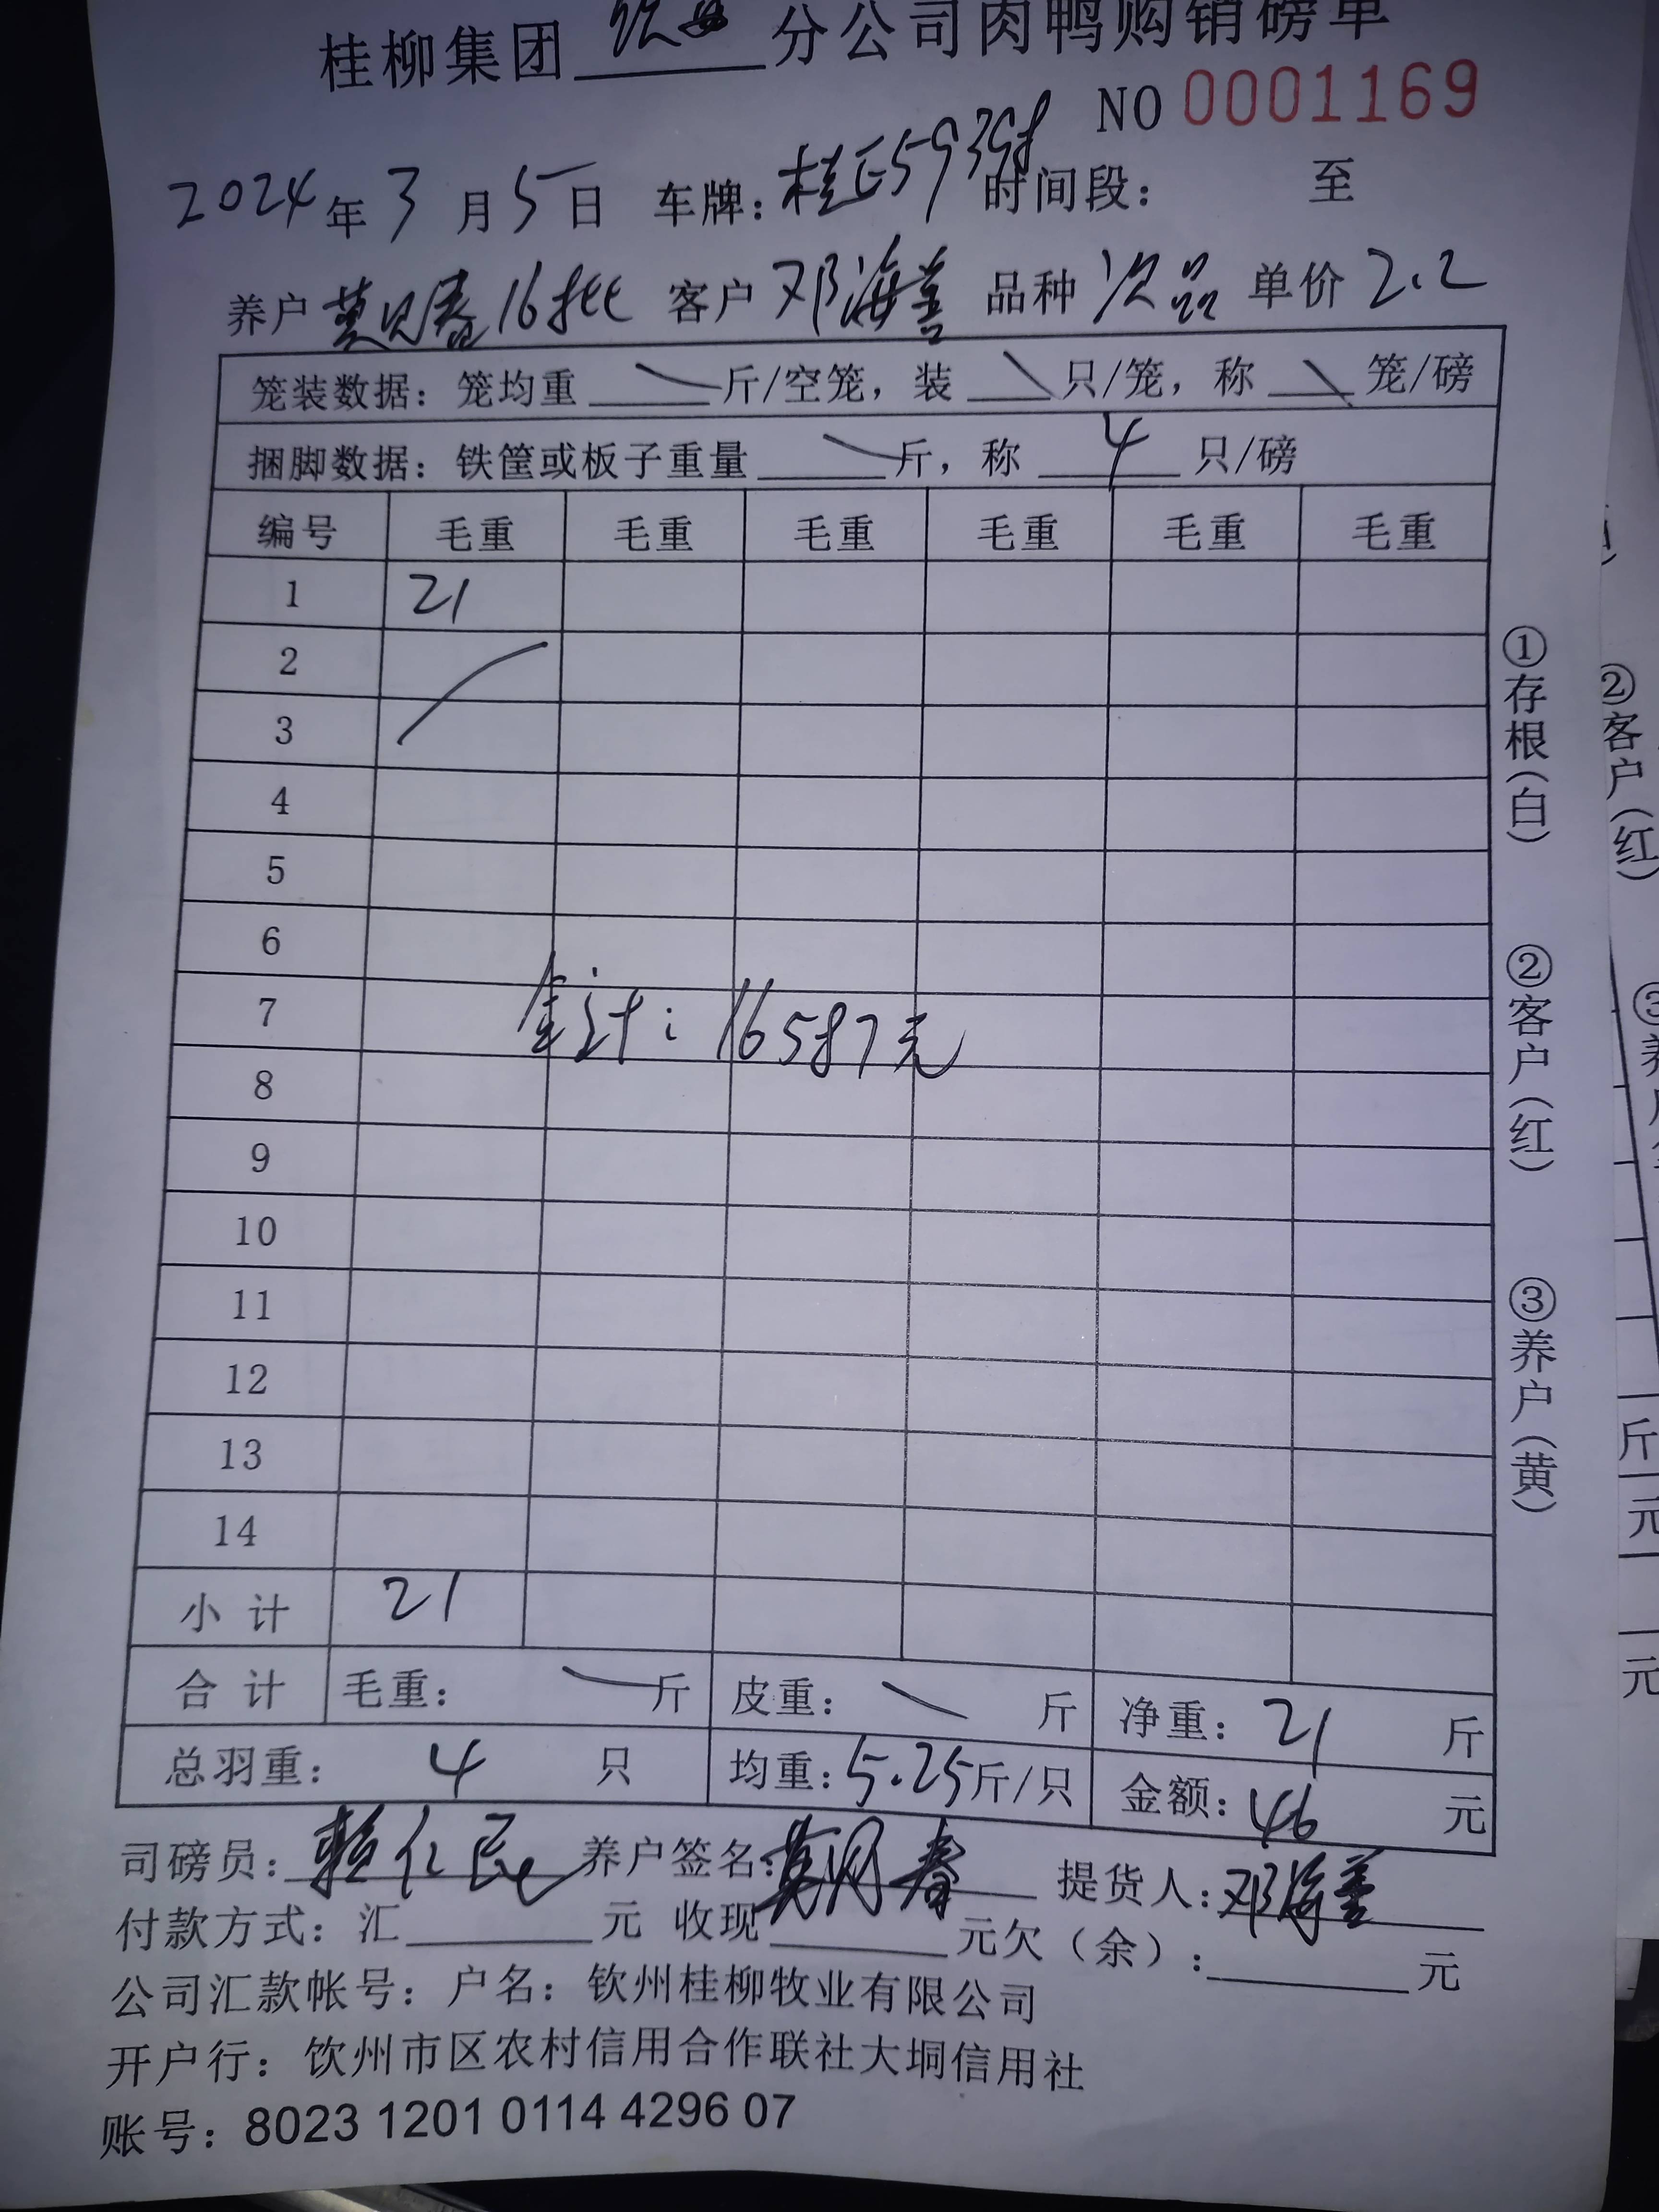 桂柳集团 分公司肉鸭购销磅单
NO 0001169
2024年3月5日 车牌: 时间段: 至
养户 16批 客户 邓海善 品种 次品 单价 2.2
笼装数据: 笼均重 斤/空笼, 装 只/笼, 称 笼/磅
捆脚数据: 铁筐或板子重量 斤, 称 4 只/磅
编号 毛重 毛重 毛重 毛重 毛重 毛重
1 21
2
3
4
5
6
7 合计: 16587元
8
9
10
11
12
13
14
小计 21
合计 毛重: 斤 皮重: 斤 净重: 21 斤
总羽重: 4 只 均重: 5.25斤/只 金额: 46 元
司磅员: 赖仁民 养户签名: 提货人: 邓海善
付款方式: 汇 元 收现 元欠(余): 元
公司汇款帐号: 户名: 钦州桂柳牧业有限公司
开户行: 钦州市区农村信用合作联社大垌信用社
账号: 8023 1201 0114 4296 07
①存根(白) ②客户(红) ③养户(黄)
②客户(红)
斤
元
元